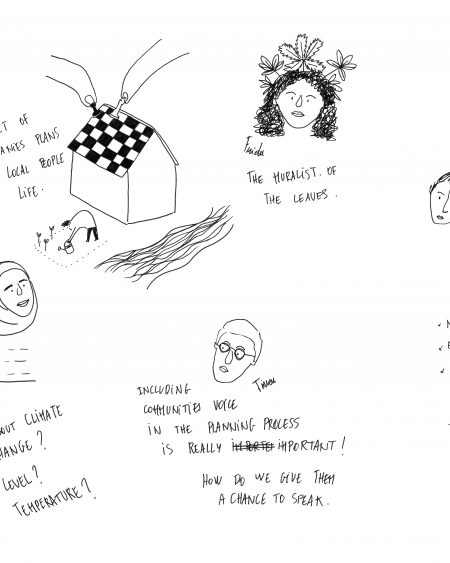 CT OF
PLANS
LOCAL PEOPLE
LIFE.
Frida
THE MURALIST. OF
THE LEAVES.
INCLUDING
COMMUNITIES VOICE
IN THE PLANNING PROCESS
IS REALLY IMPORTANT!
HOW DO WE GIVE THEM
A CHANCE TO SPEAK.
OUT CLIMATE
HANGE?
LEVEL?
TEMPERATURE?